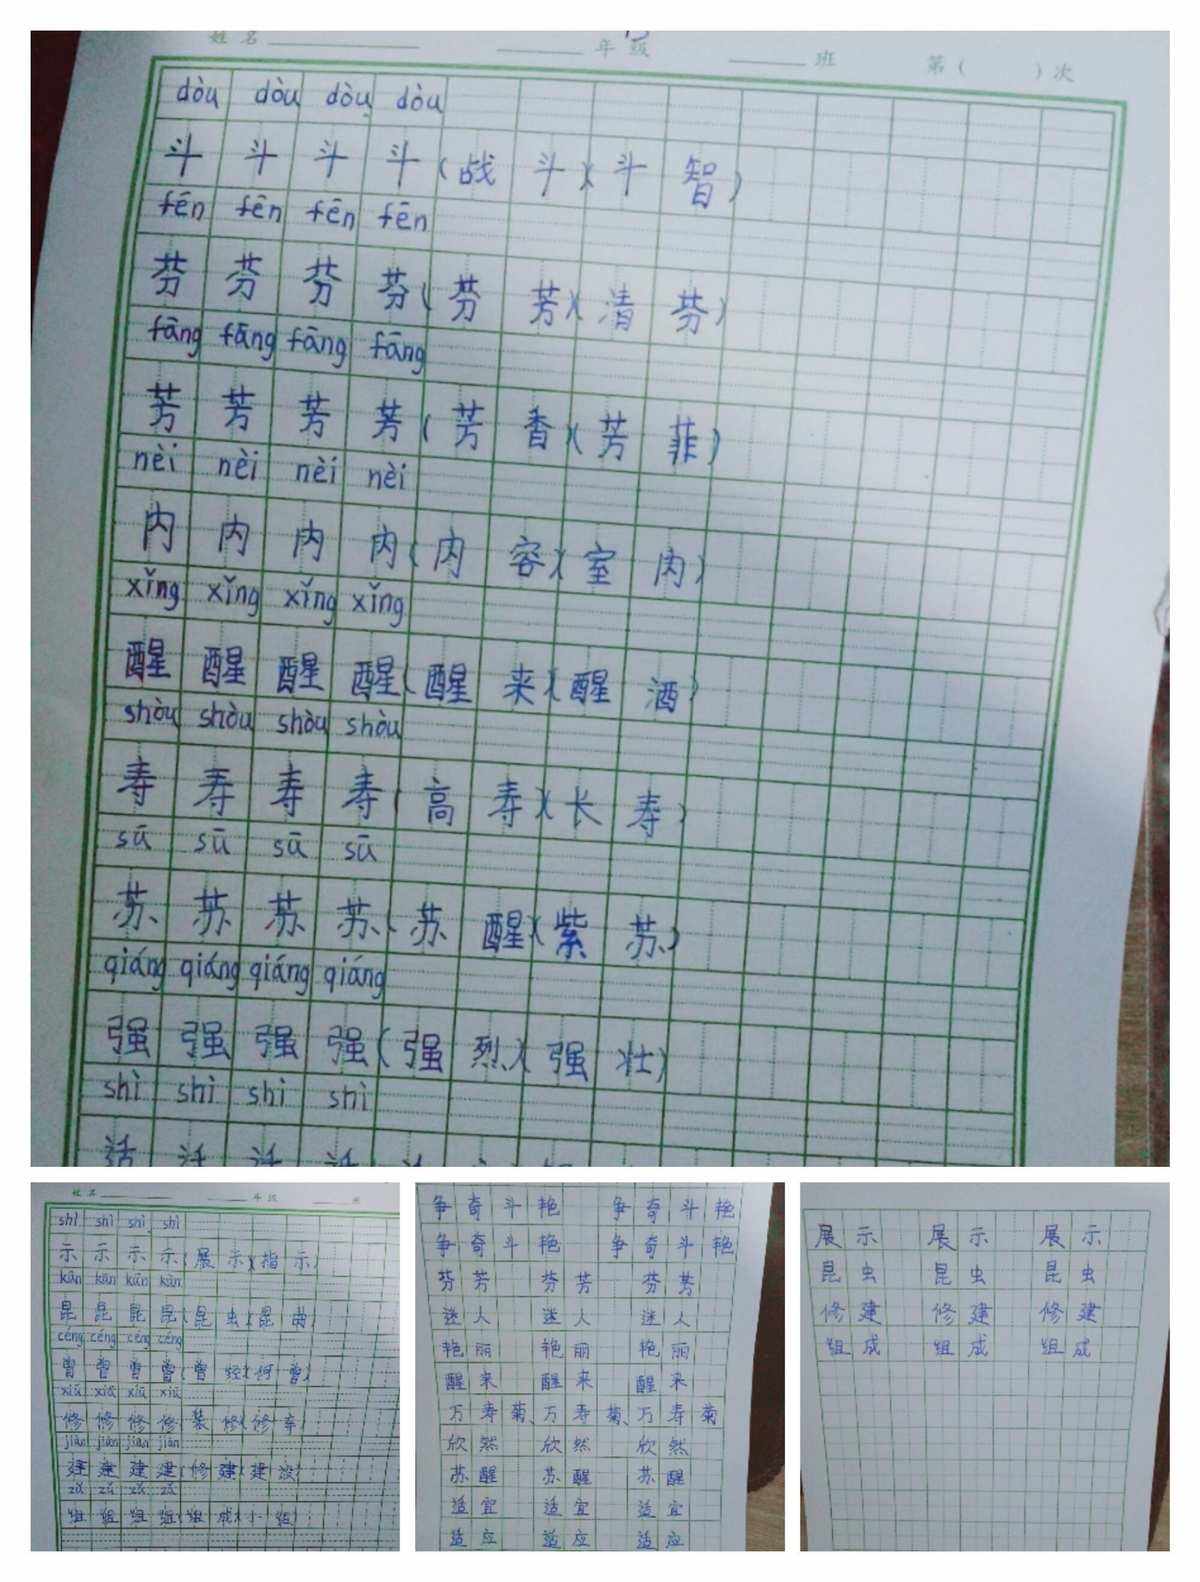 姓名 年级 班 第( )次
dòu dòu dòu dòu
斗 斗 斗 斗(战斗)(斗智)
fēn fēn fēn fēn
芬 芬 芬 芬(芬芳)(清芬)
fāng fāng fāng fāng
芳 芳 芳 芳(芳香)(芳菲)
nèi nèi nèi nèi
内 内 内 内(内容)(室内)
xǐng xǐng xǐng xǐng
醒 醒 醒 醒(醒来)(醒酒)
shòu shòu shòu shòu
寿 寿 寿 寿(高寿)(长寿)
sū sū sū sū
苏 苏 苏 苏(苏醒)(紫苏)
qiáng qiáng qiáng qiáng
强 强 强 强(强烈)(强壮)
shì shì shì shì
适 适 适 适
姓名 年级 班
shì shì shì shì
示 示 示 示(展示)(指示)
kūn kūn kūn kūn
昆 昆 昆 昆(昆虫)(昆曲)
céng céng céng céng
曾 曾 曾 曾(曾经)(何曾)
xiū xiū xiū xiū
修 修 修 修(装修)(修车)
jiàn jiàn jiàn jiàn
建 建 建 建(修建)(建设)
zǔ zǔ zǔ zǔ
组 组 组 组(组成)(小组)
争奇斗艳 争奇斗艳
争奇斗艳 争奇斗艳
芬芳 芬芳 芬芳
迷人 迷人 迷人
艳丽 艳丽 艳丽
醒来 醒来 醒来
万寿菊、万寿菊、万寿菊
欣然 欣然 欣然
苏醒 苏醒 苏醒
适宜 适宜 适宜
适应 适应 适应
展示 展示 展示
昆虫 昆虫 昆虫
修建 修建 修建
组成 组成 组成